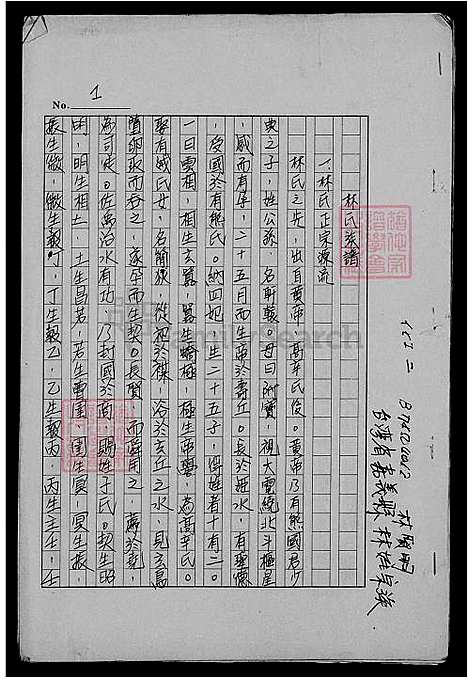 No. 1
林氏族譜
一林氏正宗源流
林氏之先，出自黃帝，高辛氏後。黃帝乃有熊國君少
典之子，姓公孫，名軒轅。母曰附寶，視大電繞北斗樞星
，感而有孕，二十五月而生帝於壽丘。長於姬水，有聖德
，受國於有熊氏。納四妃，生二十五子，得姓者十有二。
一曰玄囂，囂生蟜極，極生帝嚳，為高辛氏。
娶有娀氏女，名簡狄，從祀於禖，浴於玄丘之水，見玄鳥
墮卵取而吞之，遂孕而生契。長賢，而舜用之，薦於堯，
為司徒。佐禹治水有功，乃封國於商，賜姓子氏。契生昭
明，明生相土，土生昌若，若生曹圉，圉生冥，冥生振，
振生微，微生報丁，丁生報乙，乙生報丙，丙生主壬，壬
台灣省嘉義縣林姓宗族
FamilySearch